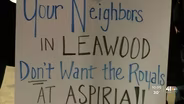 Your Neighbors
IN LEAWOOD
Don't Want the Royals
AT ASPIRIA!!
41